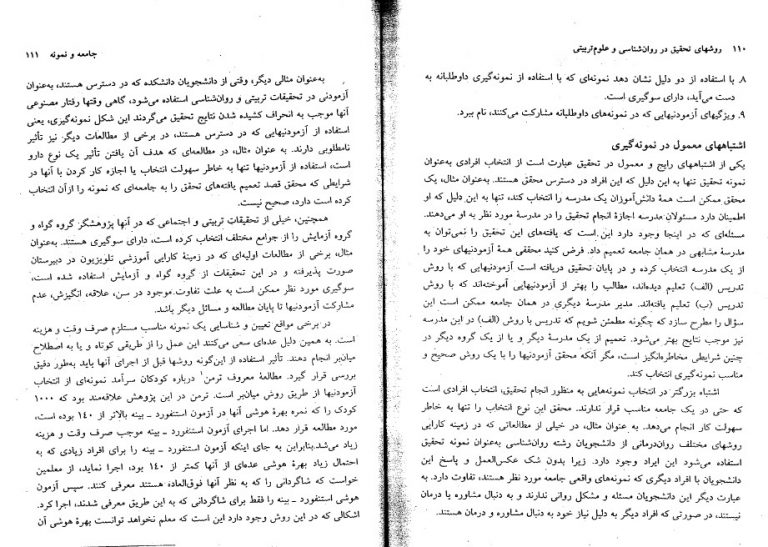 ۱۱۰ روشهای تحقیق در روان‌شناسی و علوم تربیتی
۸. با استفاده از دو دلیل نشان دهد نمونه‌ای که با استفاده از نمونه‌گیری داوطلبانه به
دست می‌آید، دارای سوگیری است.
۹. ویژگیهای آزمودنیهایی که در نمونه‌های داوطلبانه مشارکت می‌کنند، نام ببرد.
اشتباههای معمول در نمونه‌گیری
یکی از اشتباههای رایج و معمول در تحقیق عبارت است از انتخاب افرادی به‌عنوان
نمونه تحقیق تنها به این دلیل که این افراد در دسترس محقق هستند. به‌عنوان مثال، یک
محقق ممکن است همهٔ دانش‌آموزان یک مدرسه را انتخاب کند، تنها به این دلیل که او
اطمینان دارد مسئولان مدرسه اجازهٔ انجام تحقیق را در مدرسهٔ مورد نظر به او می‌دهند.
مسئله‌ای که در اینجا وجود دارد این است که یافته‌های این تحقیق را نمی‌توان به
مدرسهٔ مشابهی در همان جامعه تعمیم داد. فرض کنید محققی همهٔ آزمودنیهای خود را
از یک مدرسه انتخاب کرده و در پایان تحقیق دریافته است آزمودنیهایی که با روش
تدریس (الف) تعلیم دیده‌اند، مطالب را بهتر از آزمودنیهایی آموخته‌اند که با روش
تدریس (ب) تعلیم یافته‌اند. مدیر مدرسهٔ دیگری در همان جامعه ممکن است این
سؤال را مطرح سازد که چگونه مطمئن شویم که تدریس با روش (الف) در این مدرسه
نیز موجب نتایج بهتر می‌شود. تعمیم از یک مدرسه به مدرسهٔ دیگر و یا از یک گروه دیگر در
چنین شرایطی مخاطره‌انگیز است، مگر آنکه محقق آزمودنیها را با یک روش صحیح و
مناسب نمونه‌گیری انتخاب کند.
اشتباه بزرگتر در انتخاب نمونه‌هایی به منظور انجام تحقیق، انتخاب افرادی است
که حتی در یک جامعه مناسب قرار ندارند. محقق این نوع انتخاب را تنها به خاطر
سهولت کار انجام می‌دهد. به‌عنوان مثال، در خیلی از مطالعاتی که در زمینه کارایی
روشهای مختلف روان‌درمانی از دانشجویان رشته روان‌شناسی به‌عنوان نمونه تحقیق
استفاده می‌شود این ایراد وجود دارد. زیرا بدون شک عکس‌العمل و پاسخ این
دانشجویان با افراد دیگری که نمونه‌های واقعی جامعه مورد نظر هستند، تفاوت دارد. به
عبارت دیگر این دانشجویان مسئله و مشکل روانی ندارند و به دنبال مشاوره یا درمان
نیستند، در صورتی که افراد دیگر به دلیل نیاز خود به دنبال مشاوره و درمان هستند.
جامعه و نمونه ۱۱۱
به‌عنوان مثالی دیگر، وقتی از دانشجویان دانشکده که در دسترس هستند، به‌عنوان
آزمودنی در تحقیقات تربیتی و روان‌شناسی استفاده می‌شود، گاهی وقتها رفتار مصنوعی
آنها موجب به انحراف کشیده شدن نتایج تحقیق می‌گردند این شکل نمونه‌گیری، یعنی
استفاده از آزمودنیهایی که در دسترس هستند، در برخی از مطالعات دیگر نیز تأثیر
نامطلوبی دارند. به عنوان مثال، در مطالعه‌ای که هدف آن یافتن تأثیر یک نوع دارو
است، استفاده از آزمودنیها تنها به خاطر سهولت انتخاب یا اجازه کار کردن با آنها در
شرایطی که محقق قصد تعمیم یافته‌های تحقق را به جامعه‌ای که نمونه را ازآن انتخاب
کرده است دارد، صحیح نیست.
همچنین، خیلی از تحقیقات تربیتی و اجتماعی که در آنها پژوهشگر گروه گواه و
گروه آزمایش را از جوامع مختلف انتخاب کرده است، دارای سوگیری هستند. به‌عنوان
مثال، برخی از مطالعات اولیه‌ای که در زمینهٔ کارایی آموزشی تلویزیون در دبیرستان
صورت پذیرفته و در این تحقیقات از گروه گواه و آزمایش استفاده شده است،
سوگیری مورد نظر ممکن است به علت تفاوت موجود در سن، علاقه، انگیزش، عدم
مشارکت آزمودنیها تا پایان مطالعه و مسائل دیگر باشد.
در برخی مواقع تعیین و شناسایی یک نمونه مناسب مستلزم صرف وقت و هزینه
است. به همین دلیل عده‌ای سعی می‌کنند این عمل را از طریقی کوتاه و یا به اصطلاح
میان‌بر انجام دهند. تأثیر استفاده از این‌گونه روشها قبل از اجرای آنها باید به‌طور دقیق
بررسی قرار گیرد. مطالعهٔ معروف ترمن درباره کودکان سرآمد نمونه‌ای از انتخاب
آزمودنیها از طریق روش میان‌بر است. ترمن در این پژوهش علاقه‌مند بود که ۱۰۰۰
کودک را که نمره بهرهٔ هوشی آنها در آزمون استنفورد ـ بینه بالاتر از ۱۴۰ بوده است،
مورد مطالعه قرار دهد. اما اجرای آزمون استنفورد ـ بینه موجب صرف وقت و هزینه
زیاد می‌شد.بنابراین به جای اینکه آزمون استنفورد ـ بینه را برای افراد زیادی که به
احتمال زیاد بهرهٔ هوشی عده‌ای از آنها کمتر از ۱۴۰ بود، اجرا نماید، از معلمین
خواست که شاگردانی را که به نظر آنها فوق‌العاده، هستند معرفی کنند. سپس آزمون
هوشی استنفورد ـ بینه را فقط برای شاگردانی که به این طریق معرفی شدند، اجرا کرد.
اشکالی که در این روش وجود دارد این است که معلم نخواهد توانست بهرهٔ هوشی آن